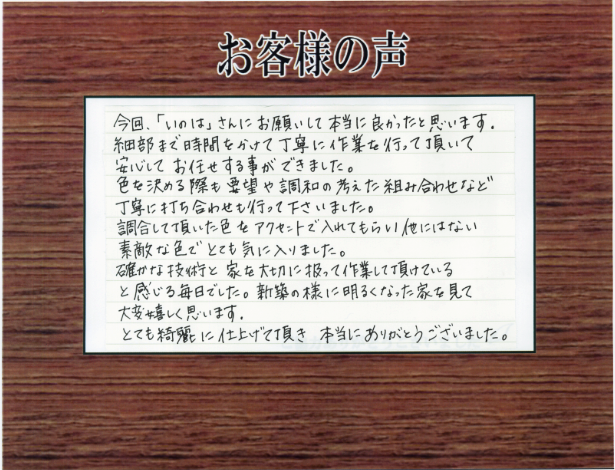 お客様の声
今回、「いのは」さんにお願いして本当に良かったと思います。
細部まで時間をかけて丁寧に作業を行って頂いて
安心してお任せする事ができました。
色を決める際も要望や調和の考えた組み合わせなど
丁寧に打ち合わせも行って下さいました。
調合して頂いた色をアクセントで入れてもらい他にはない
素敵な色でとても気に入りました。
確かな技術と家を大切に扱って作業して頂けている
と感じる毎日でした。新築の様に明るくなった家を見て
大変嬉しく思います。
とても綺麗に仕上げて頂き 本当にありがとうございました。